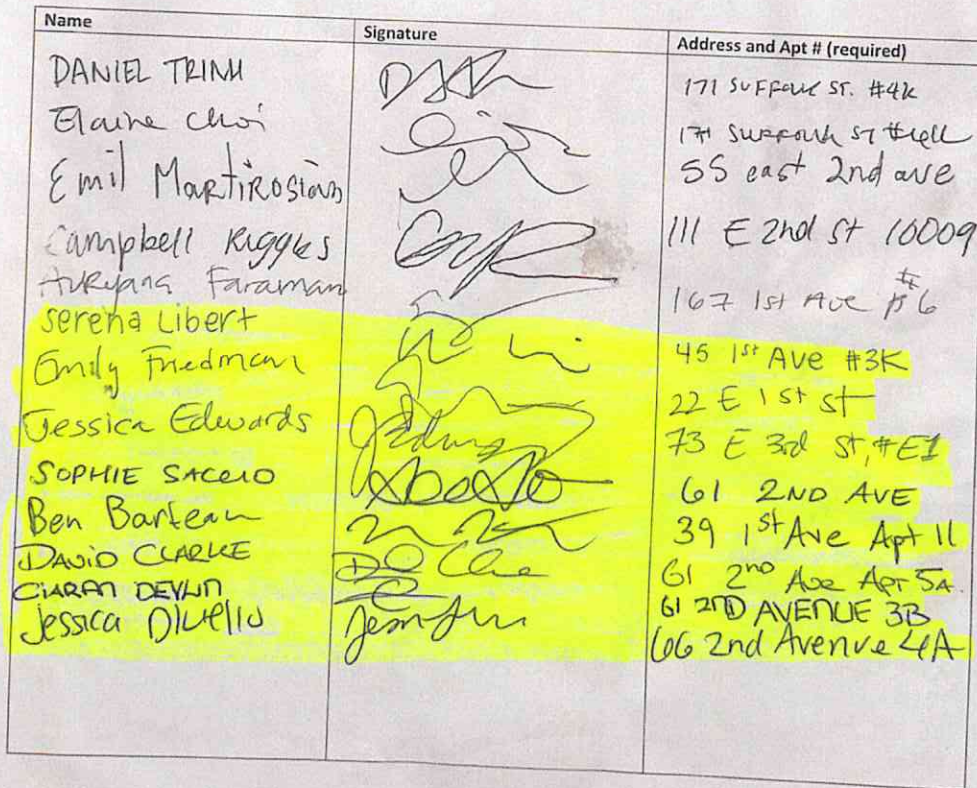 Name Signature Address and Apt # (required)
DANIEL TRINH 171 SUFFOLK ST. #4K
Elaine Choi 171 SUFFOLK ST
Emil Martirosian 55 east 2nd ave
Campbell Riggles 111 E 2nd St 10009
Faraman 167 1st Ave # 6
Serena Libert
Emily Friedman 45 1st Ave #3K
22 E 1st st
Jessica Edwards 73 E 3rd St, #E1
SOPHIE 61 2ND AVE
Ben Barteau 39 1st Ave Apt 11
DAVID CLARKE 61 2nd Ave Apt 5A
CIARAN DEVLIN 61 2ND AVENUE 3B
Jessica 66 2nd Avenue 4A